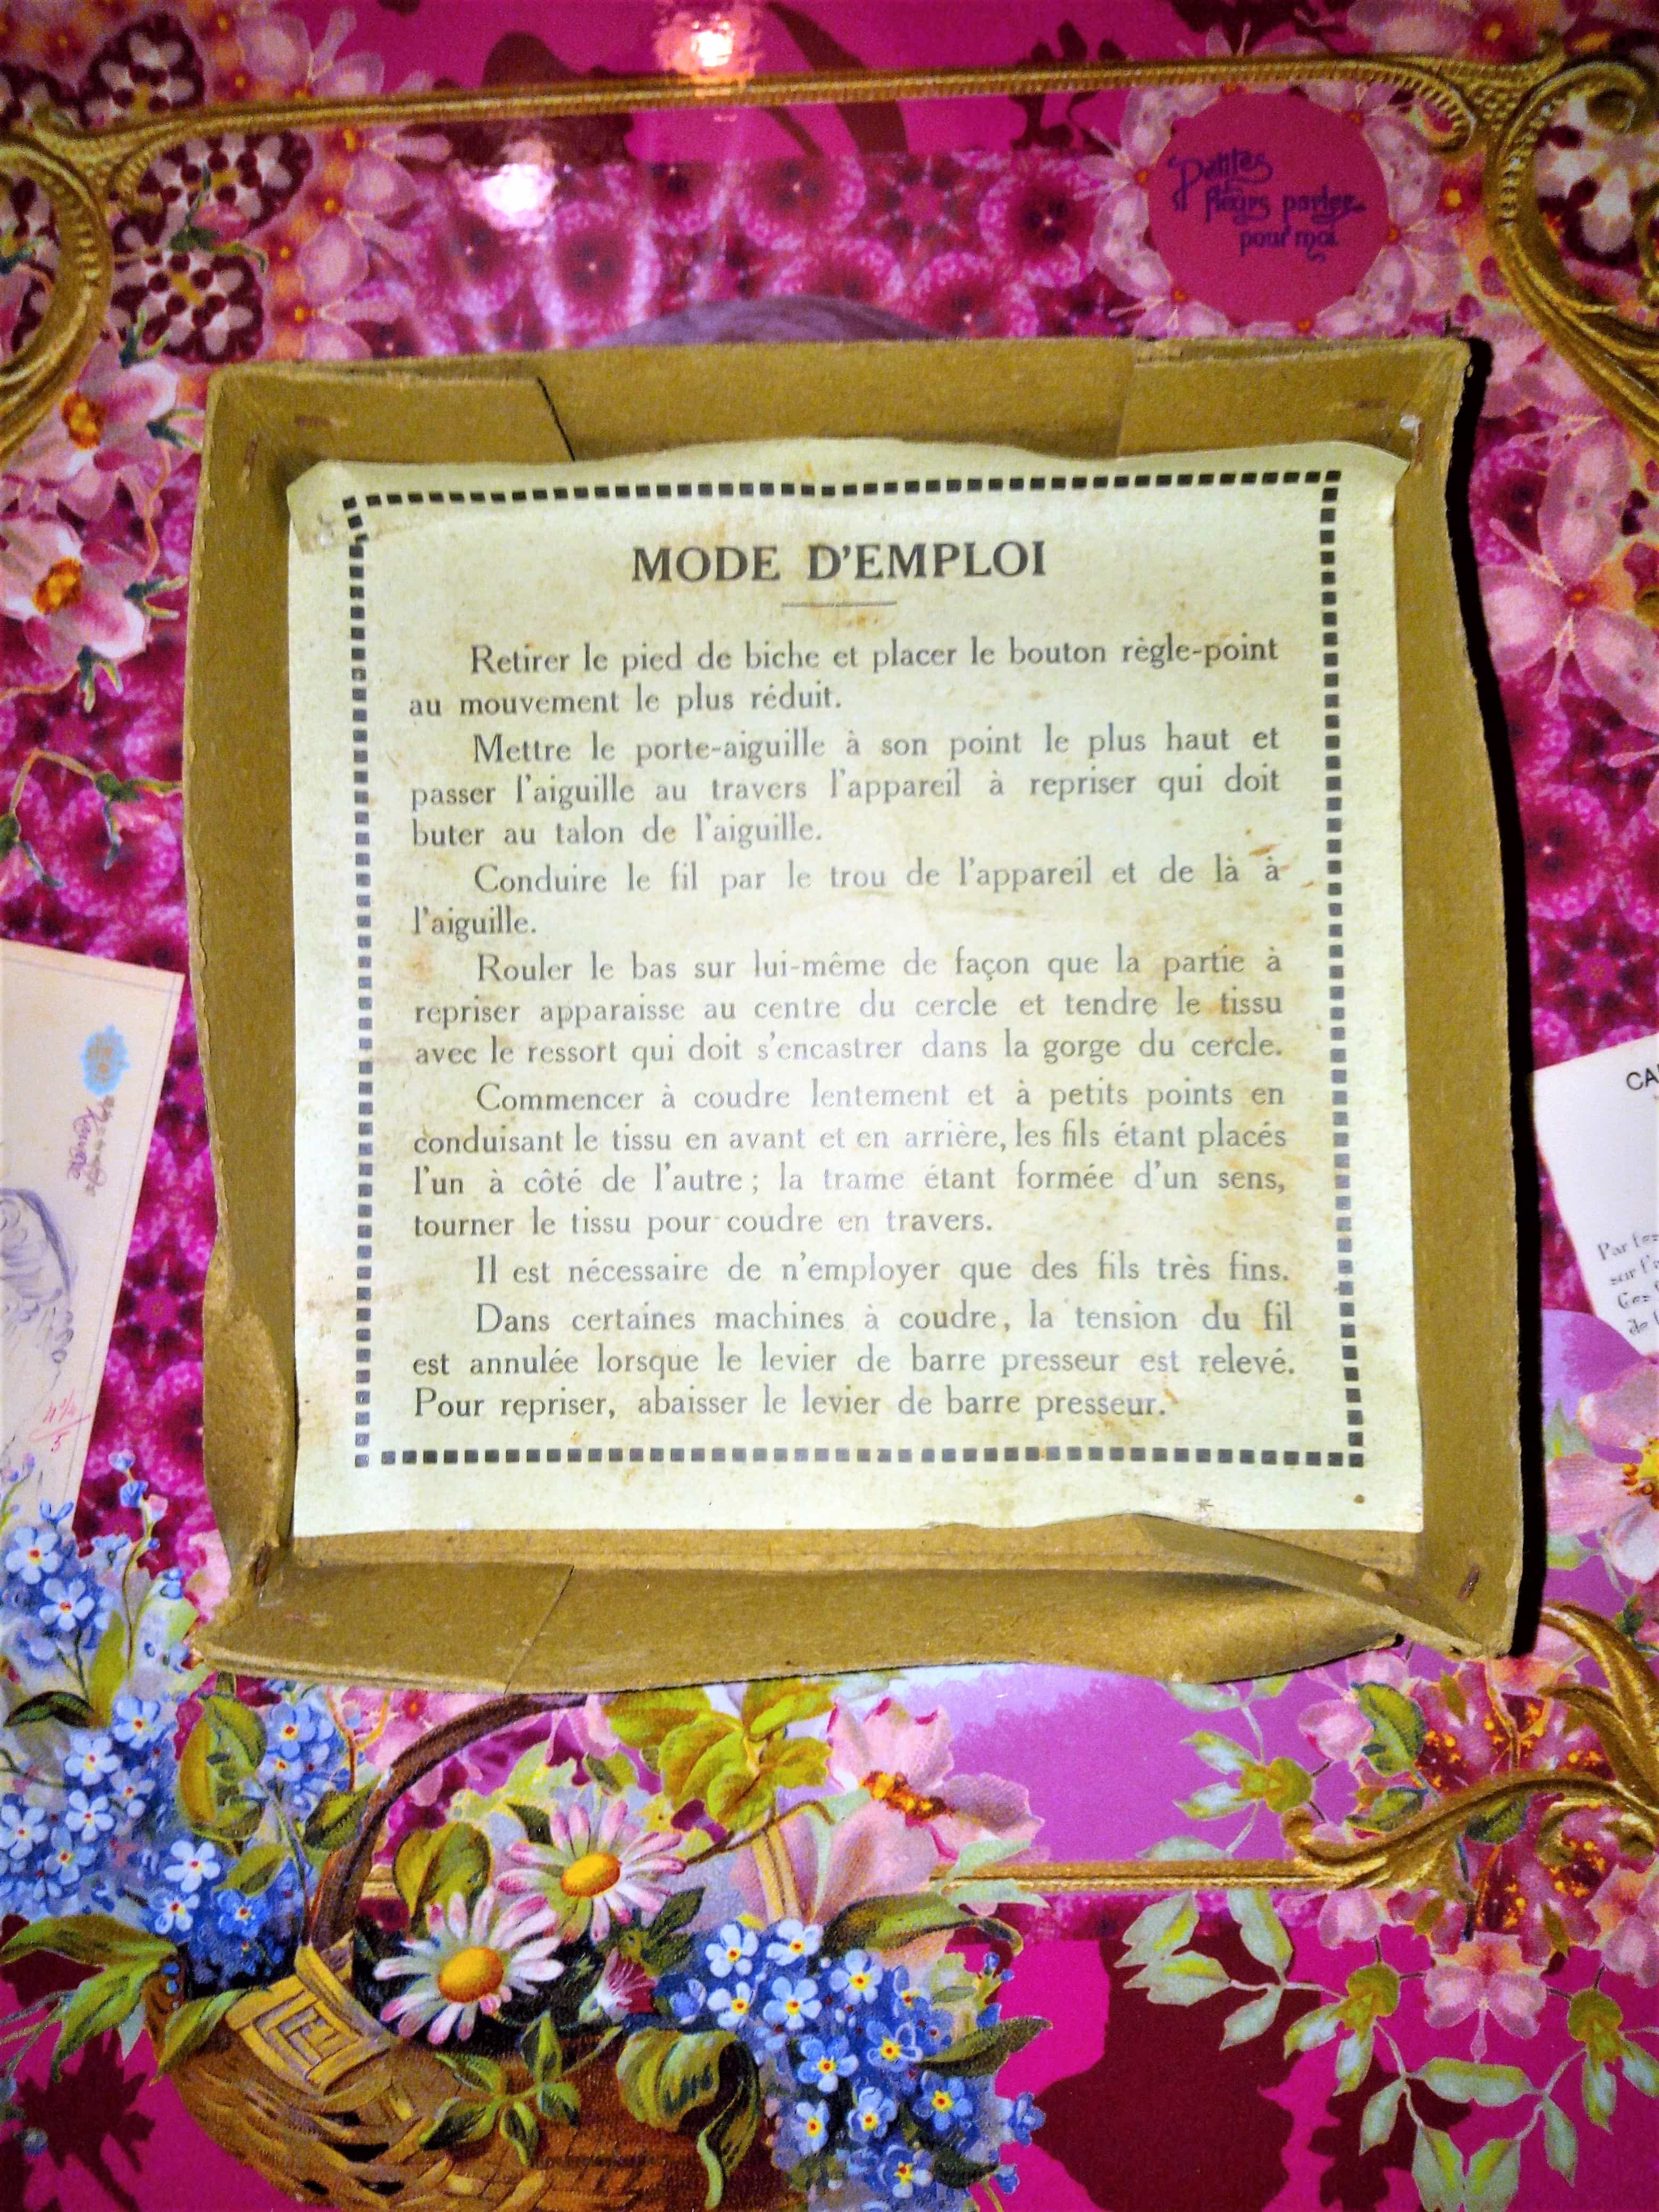 Petites
fleurs parlez
pour moi
MODE D'EMPLOI
Retirer le pied de biche et placer le bouton règle-point
au mouvement le plus réduit.
Mettre le porte-aiguille à son point le plus haut et
passer l'aiguille au travers l'appareil à repriser qui doit
buter au talon de l'aiguille.
Conduire le fil par le trou de l'appareil et de là à
l'aiguille.
Rouler le bas sur lui-même de façon que la partie à
repriser apparaisse au centre du cercle et tendre le tissu
avec le ressort qui doit s'encastrer dans la gorge du cercle.
Commencer à coudre lentement et à petits points en
conduisant le tissu en avant et en arrière, les fils étant placés
l'un à côté de l'autre ; la trame étant formée d'un sens,
tourner le tissu pour coudre en travers.
Il est nécessaire de n'employer que des fils très fins.
Dans certaines machines à coudre, la tension du fil
est annulée lorsque le levier de barre presseur est relevé.
Pour repriser, abaisser le levier de barre presseur.
CA